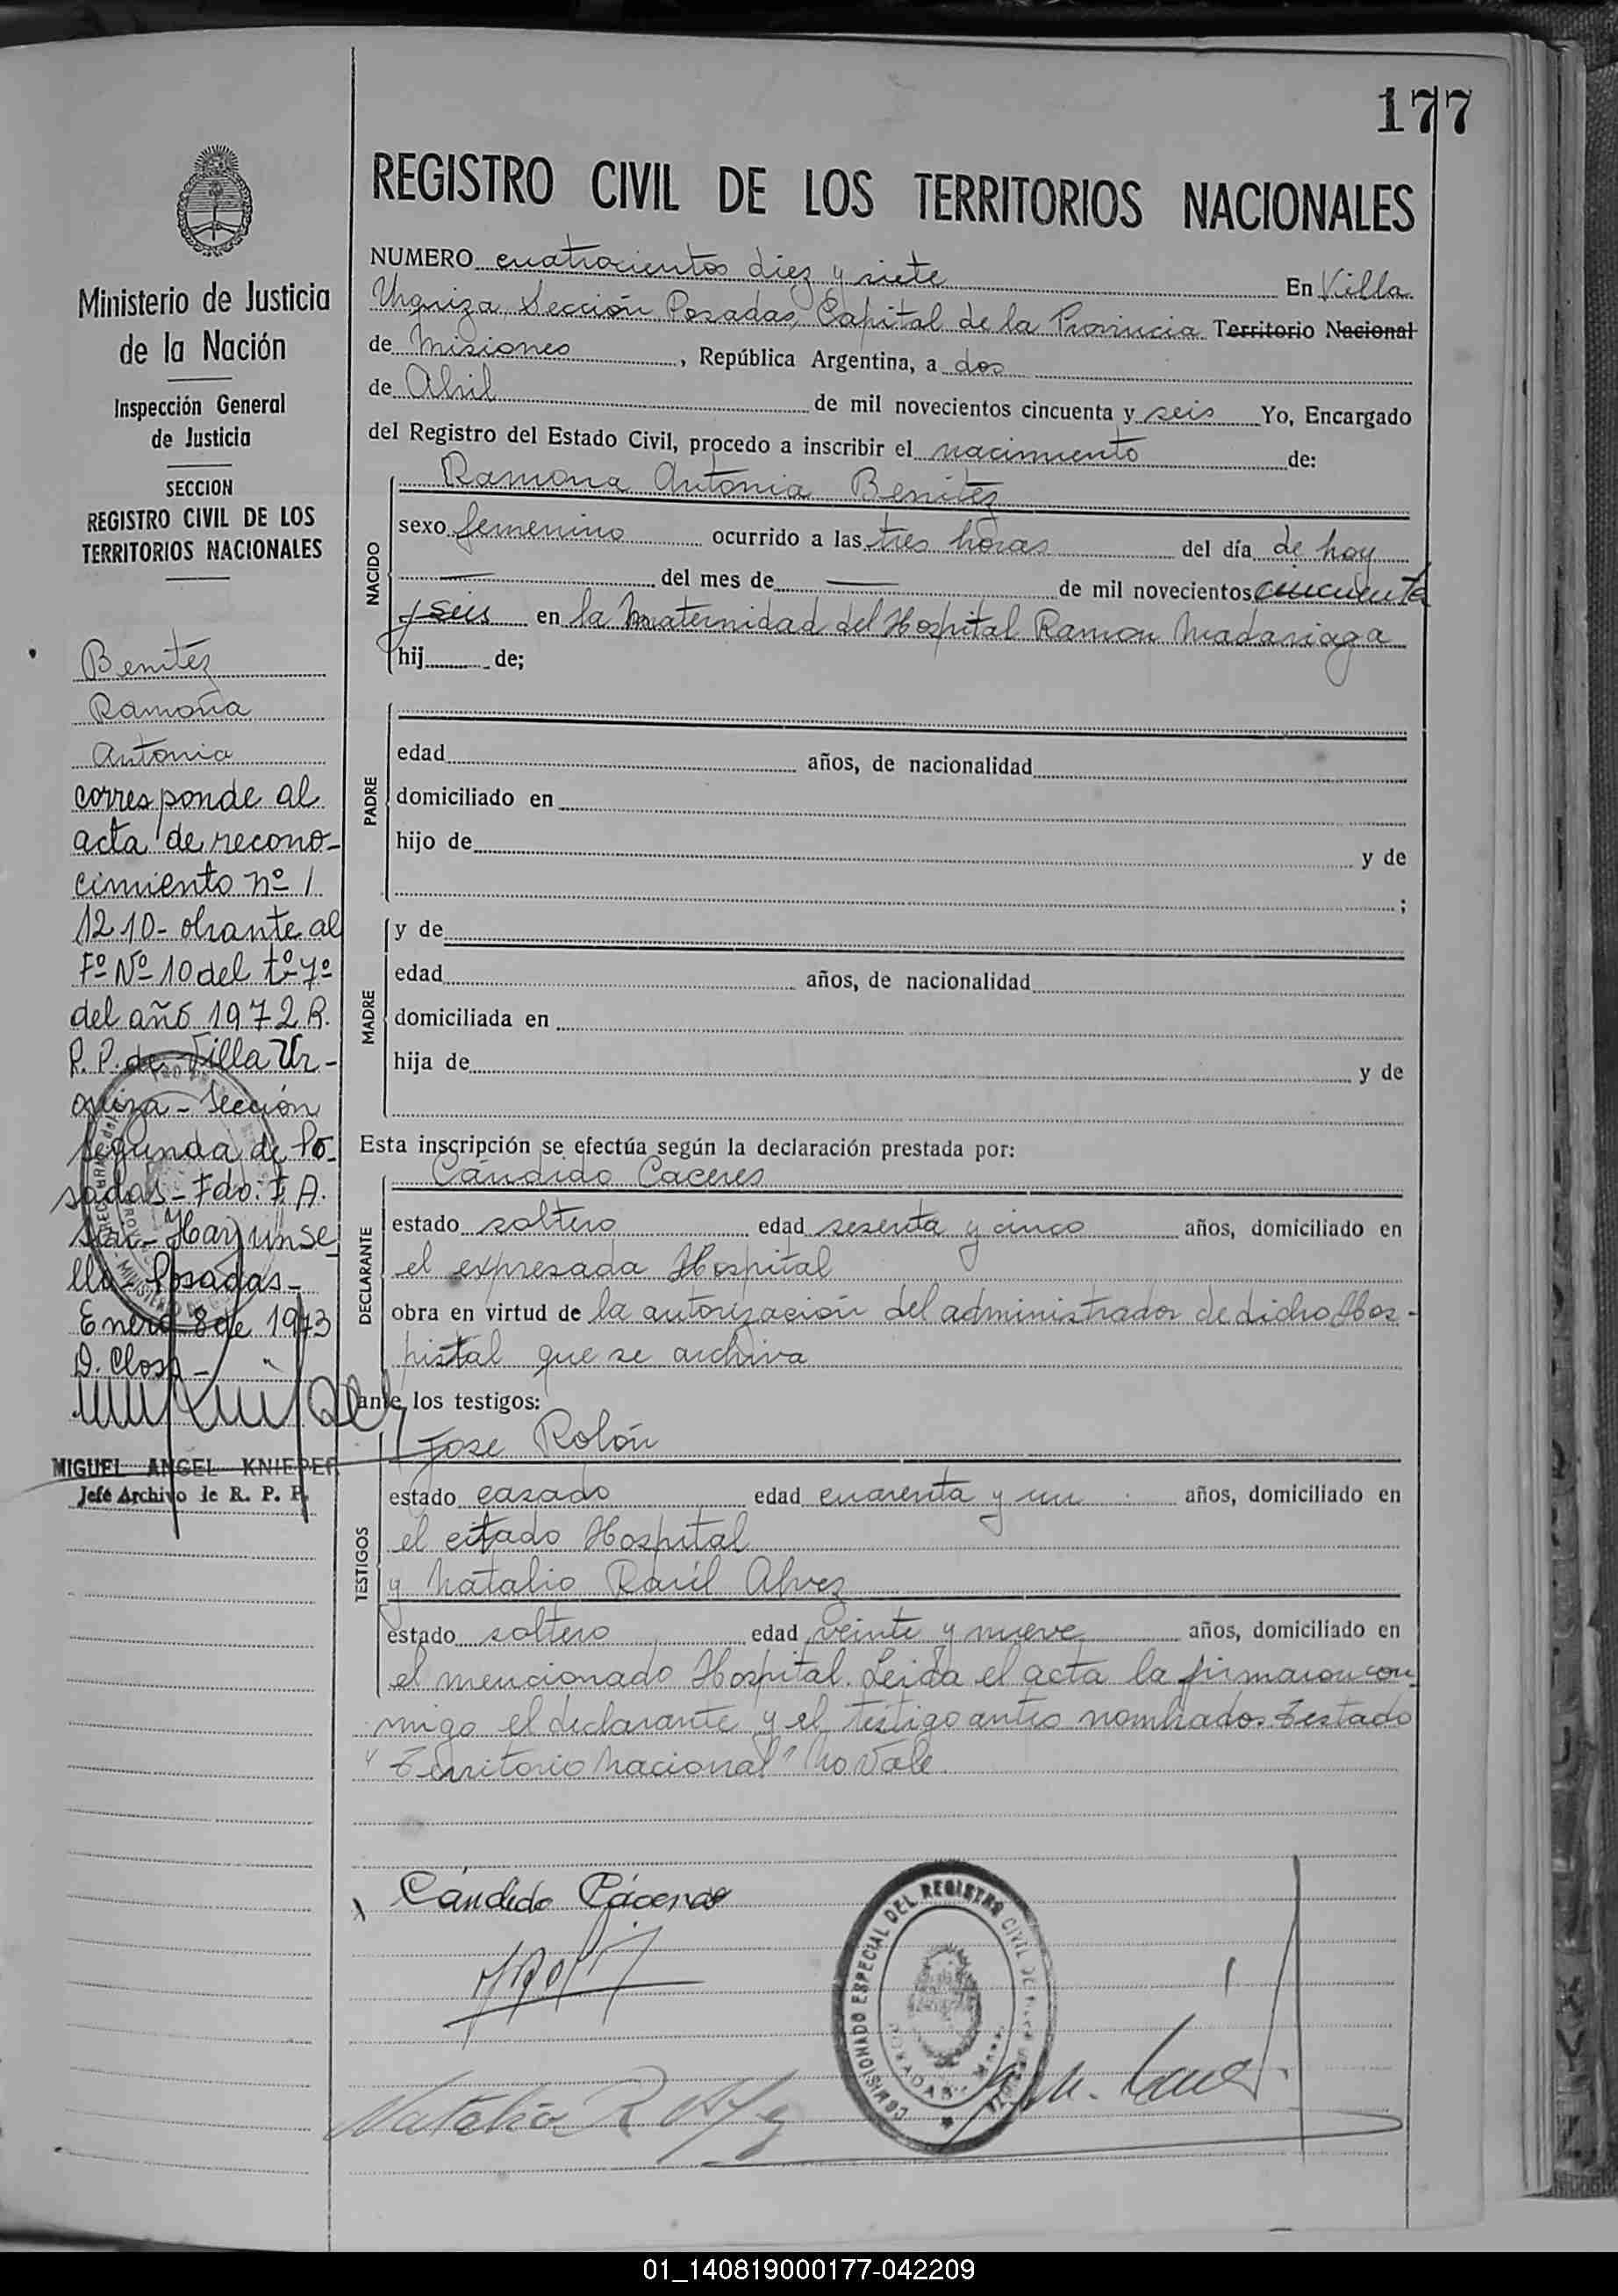 177
REGISTRO CIVIL DE LOS TERRITORIOS NACIONALES
NUMERO cuatrocientos diez y siete En Villa
Urquiza, Sección Posadas, Capital de la Provincia Territorio Nacional
de Misiones, República Argentina, a dos
de Abril de mil novecientos cincuenta y seis Yo, Encargado
del Registro del Estado Civil, procedo a inscribir el nacimiento de:
NACIDO
Ramona Antonia Benitez
sexo femenino ocurrido a las tres horas del día de hoy
— del mes de — de mil novecientos cincuenta
y seis en la Maternidad del Hospital Ramon Madariaga
hij de;
PADRE
edad años, de nacionalidad
domiciliado en
hijo de y de
;
MADRE
y de
edad años, de nacionalidad
domiciliada en
hija de y de
Esta inscripción se efectúa según la declaración prestada por:
DECLARANTE
Cándido Caceres
estado soltero edad sesenta y cinco años, domiciliado en
el expresada Hospital
obra en virtud de la autorización del administrador de dicho Hos-
pistal que se archiva
ante los testigos:
TESTIGOS
Jose Rolón
estado casado edad cuarenta y un años, domiciliado en
el citado Hospital
y Natalio Raúl Alvez
estado soltero edad veinte y nueve años, domiciliado en
el mencionado Hospital. Leida el acta la firmaron con
migo el declarante y el testigo antes nombrados. Testado
"Territorio Nacional" No Vale.
Cándido Cáceres
COMISIONADO ESPECIAL DEL REGISTRO CIVIL
POSADAS
Ministerio de Justicia
de la Nación
Inspección General
de Justicia
SECCION
REGISTRO CIVIL DE LOS
TERRITORIOS NACIONALES
Benitez
Ramona
Antonia
corresponde al
acta de recono-
cimiento nº /
1210- obrante al
Fº Nº 10 del tº 7º
del año 1972 R.
P. P. de Villa Ur-
quiza - Sección
segunda de Po-
sadas - Fdo: F. A.
Hay un se-
llo - Posadas -
Enero 8 de 1973
D. Closs -
MIGUEL ANGEL KNIEPER
Jefe Archivo de R. P. P.
01_140819000177-042209